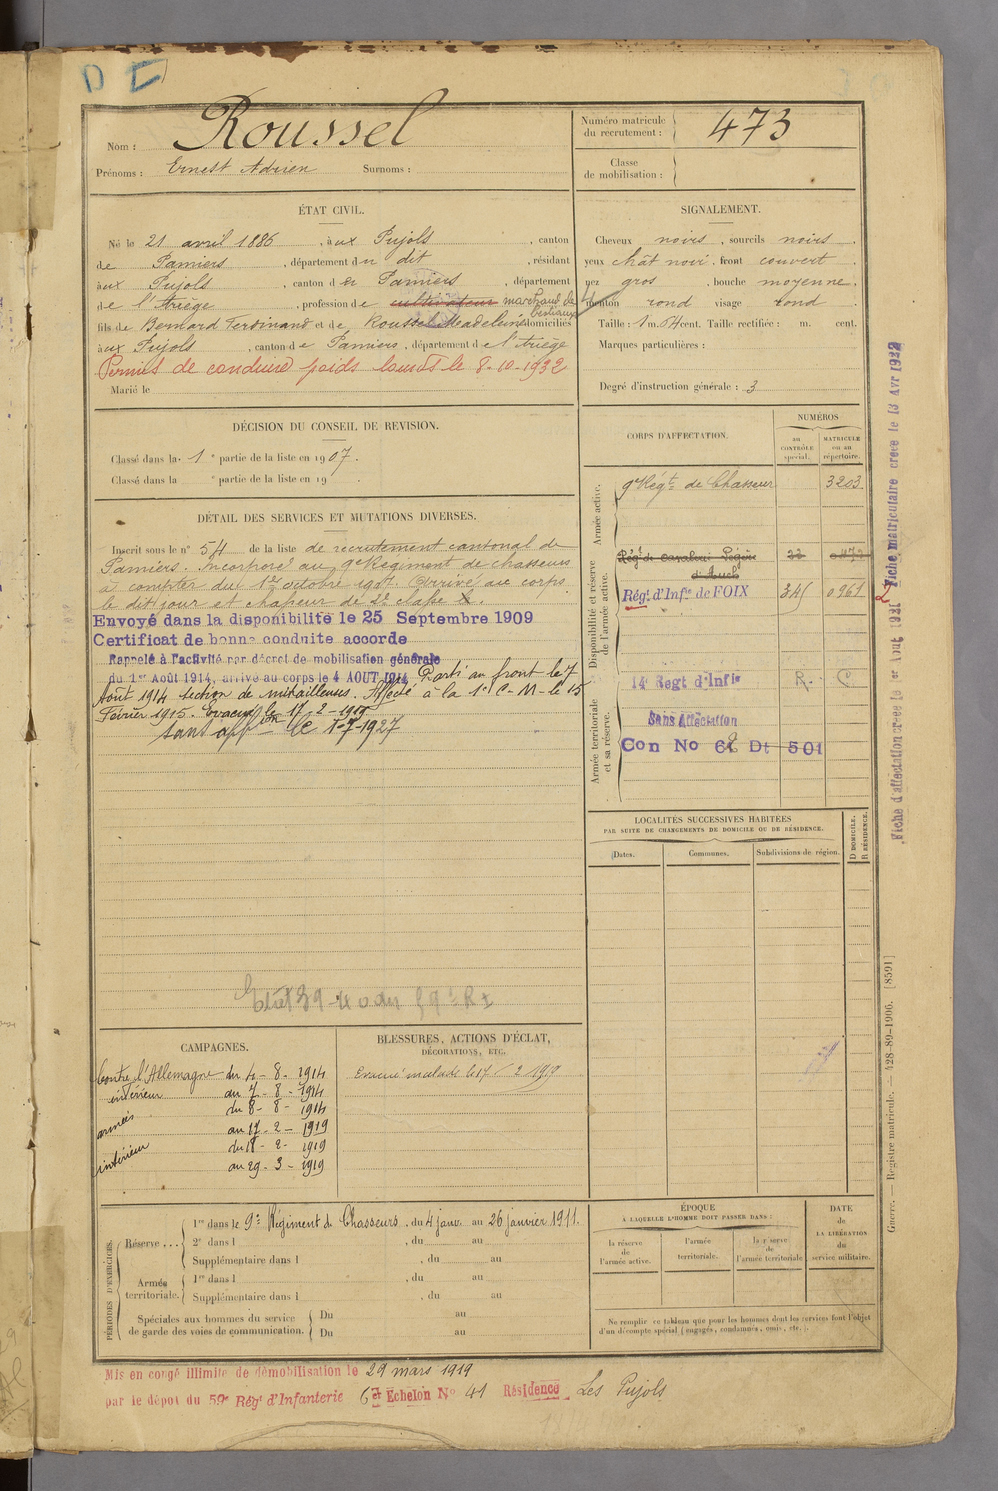 D
Nom : Roussel
Prénoms : Ernest Adrien Surnoms :
Numéro matricule du recrutement : 473
Classe de mobilisation :
ÉTAT CIVIL.
Né le 21 avril 1886 , à ux Pujols , canton
de Pamiers , département du dit , résidant
à ux Pujols , canton d e Pamiers , département
de l'Ariège , profession de cultivateur marchand de bestiaux
fils de Bernard Ferdinand et de Roussel Madeleine domiciliés
à ux Pujols , canton d e Pamiers , département d e l'Ariège
Permis de conduire poids lourds le 8-10-1932
Marié le
SIGNALEMENT.
Cheveux noirs , sourcils noirs
yeux chât noir , front couvert ,
nez gros , bouche moyenne ,
menton rond visage rond
Taille : 1 m. 64 cent. Taille rectifiée : m. cent.
Marques particulières :
Degré d'instruction générale : 3
DÉCISION DU CONSEIL DE REVISION.
Classé dans la 1e partie de la liste en 1907.
Classé dans la e partie de la liste en 19
DÉTAIL DES SERVICES ET MUTATIONS DIVERSES.
Inscrit sous le n° 54 de la liste de recrutement cantonal de
Pamiers. Incorporé au 9e Régiment de chasseurs
à compter du 1er octobre 1907. Arrivé au corps
le dit jour et chasseur de 2e classe
Envoyé dans la disponibilité le 25 Septembre 1909
Certificat de bonne conduite accordé
Rappelé à l'activité par décret de mobilisation générale
du 1er Août 1914, arrivé au corps le 4 AOUT 1914 Parti au front le 7
Août 1914 section de mitrailleuses. Affecté à la 1e C-M- le 15
Février 1915. Evacué le 17-2-1919
sans aff le 1-7-1927
CORPS D'AFFECTATION.
NUMÉROS
au CONTRÔLE spécial.
MATRICULE ou au répertoire.
Armée active.
9e Régt de Chasseurs 3203
Disponibilité et réserve de l'armée active.
Régt de cavalerie légère d'Auch
Régt d'Infie de FOIX 345 0961
Armée territoriale et sa réserve.
14e Regt d'Infie R. C
Sans Affectation
Con No 68 Dt 501
LOCALITÉS SUCCESSIVES HABITÉES
PAR SUITE DE CHANGEMENTS DE DOMICILE OU DE RÉSIDENCE.
Dates. Communes. Subdivisions de région. D DOMICILE. R RÉSIDENCE.
CAMPAGNES.
Contre l'Allemagne du 4 - 8 - 1914
intérieur au 7 - 8 - 1914
du 8 - 8 - 1914
armées au 17 - 2 - 1919
du 18 - 2 - 1919
intérieur au 29 - 3 - 1919
BLESSURES, ACTIONS D'ÉCLAT,
DÉCORATIONS, ETC.
Evacué malade le 17 / 2 1919
PÉRIODES D'EXERCICES.
Réserve . . .
1re dans le 9e Régiment de Chasseurs , du 4 janv. au 26 janvier 1911.
2e dans l , du au
Supplémentaire dans l , du au
Armée territoriale.
1re dans l , du au
Supplémentaire dans l , du au
Spéciales aux hommes du service de garde des voies de communication.
Du au
Du au
ÉPOQUE
À LAQUELLE L'HOMME DOIT PASSER DANS :
la réserve de l'armée active.
l'armée territoriale.
la réserve de l'armée territoriale
DATE de LA LIBÉRATION du service militaire.
Ne remplir ce tableau que pour les hommes dont les services font l'objet
d'un décompte spécial (engagés, condamnés, omis, etc.).
Mis en congé illimité de démobilisation le 29 mars 1919
par le dépot du 59e Régt d'Infanterie 6e Echelon No 41 Résidence Les Pujols
Fiche d'affectation créée le 1er Août 1931 Fiche matriculaire créée le 13 Avr 1932
Guerre. — Registre matricule. — 428-89-1906. [8591]